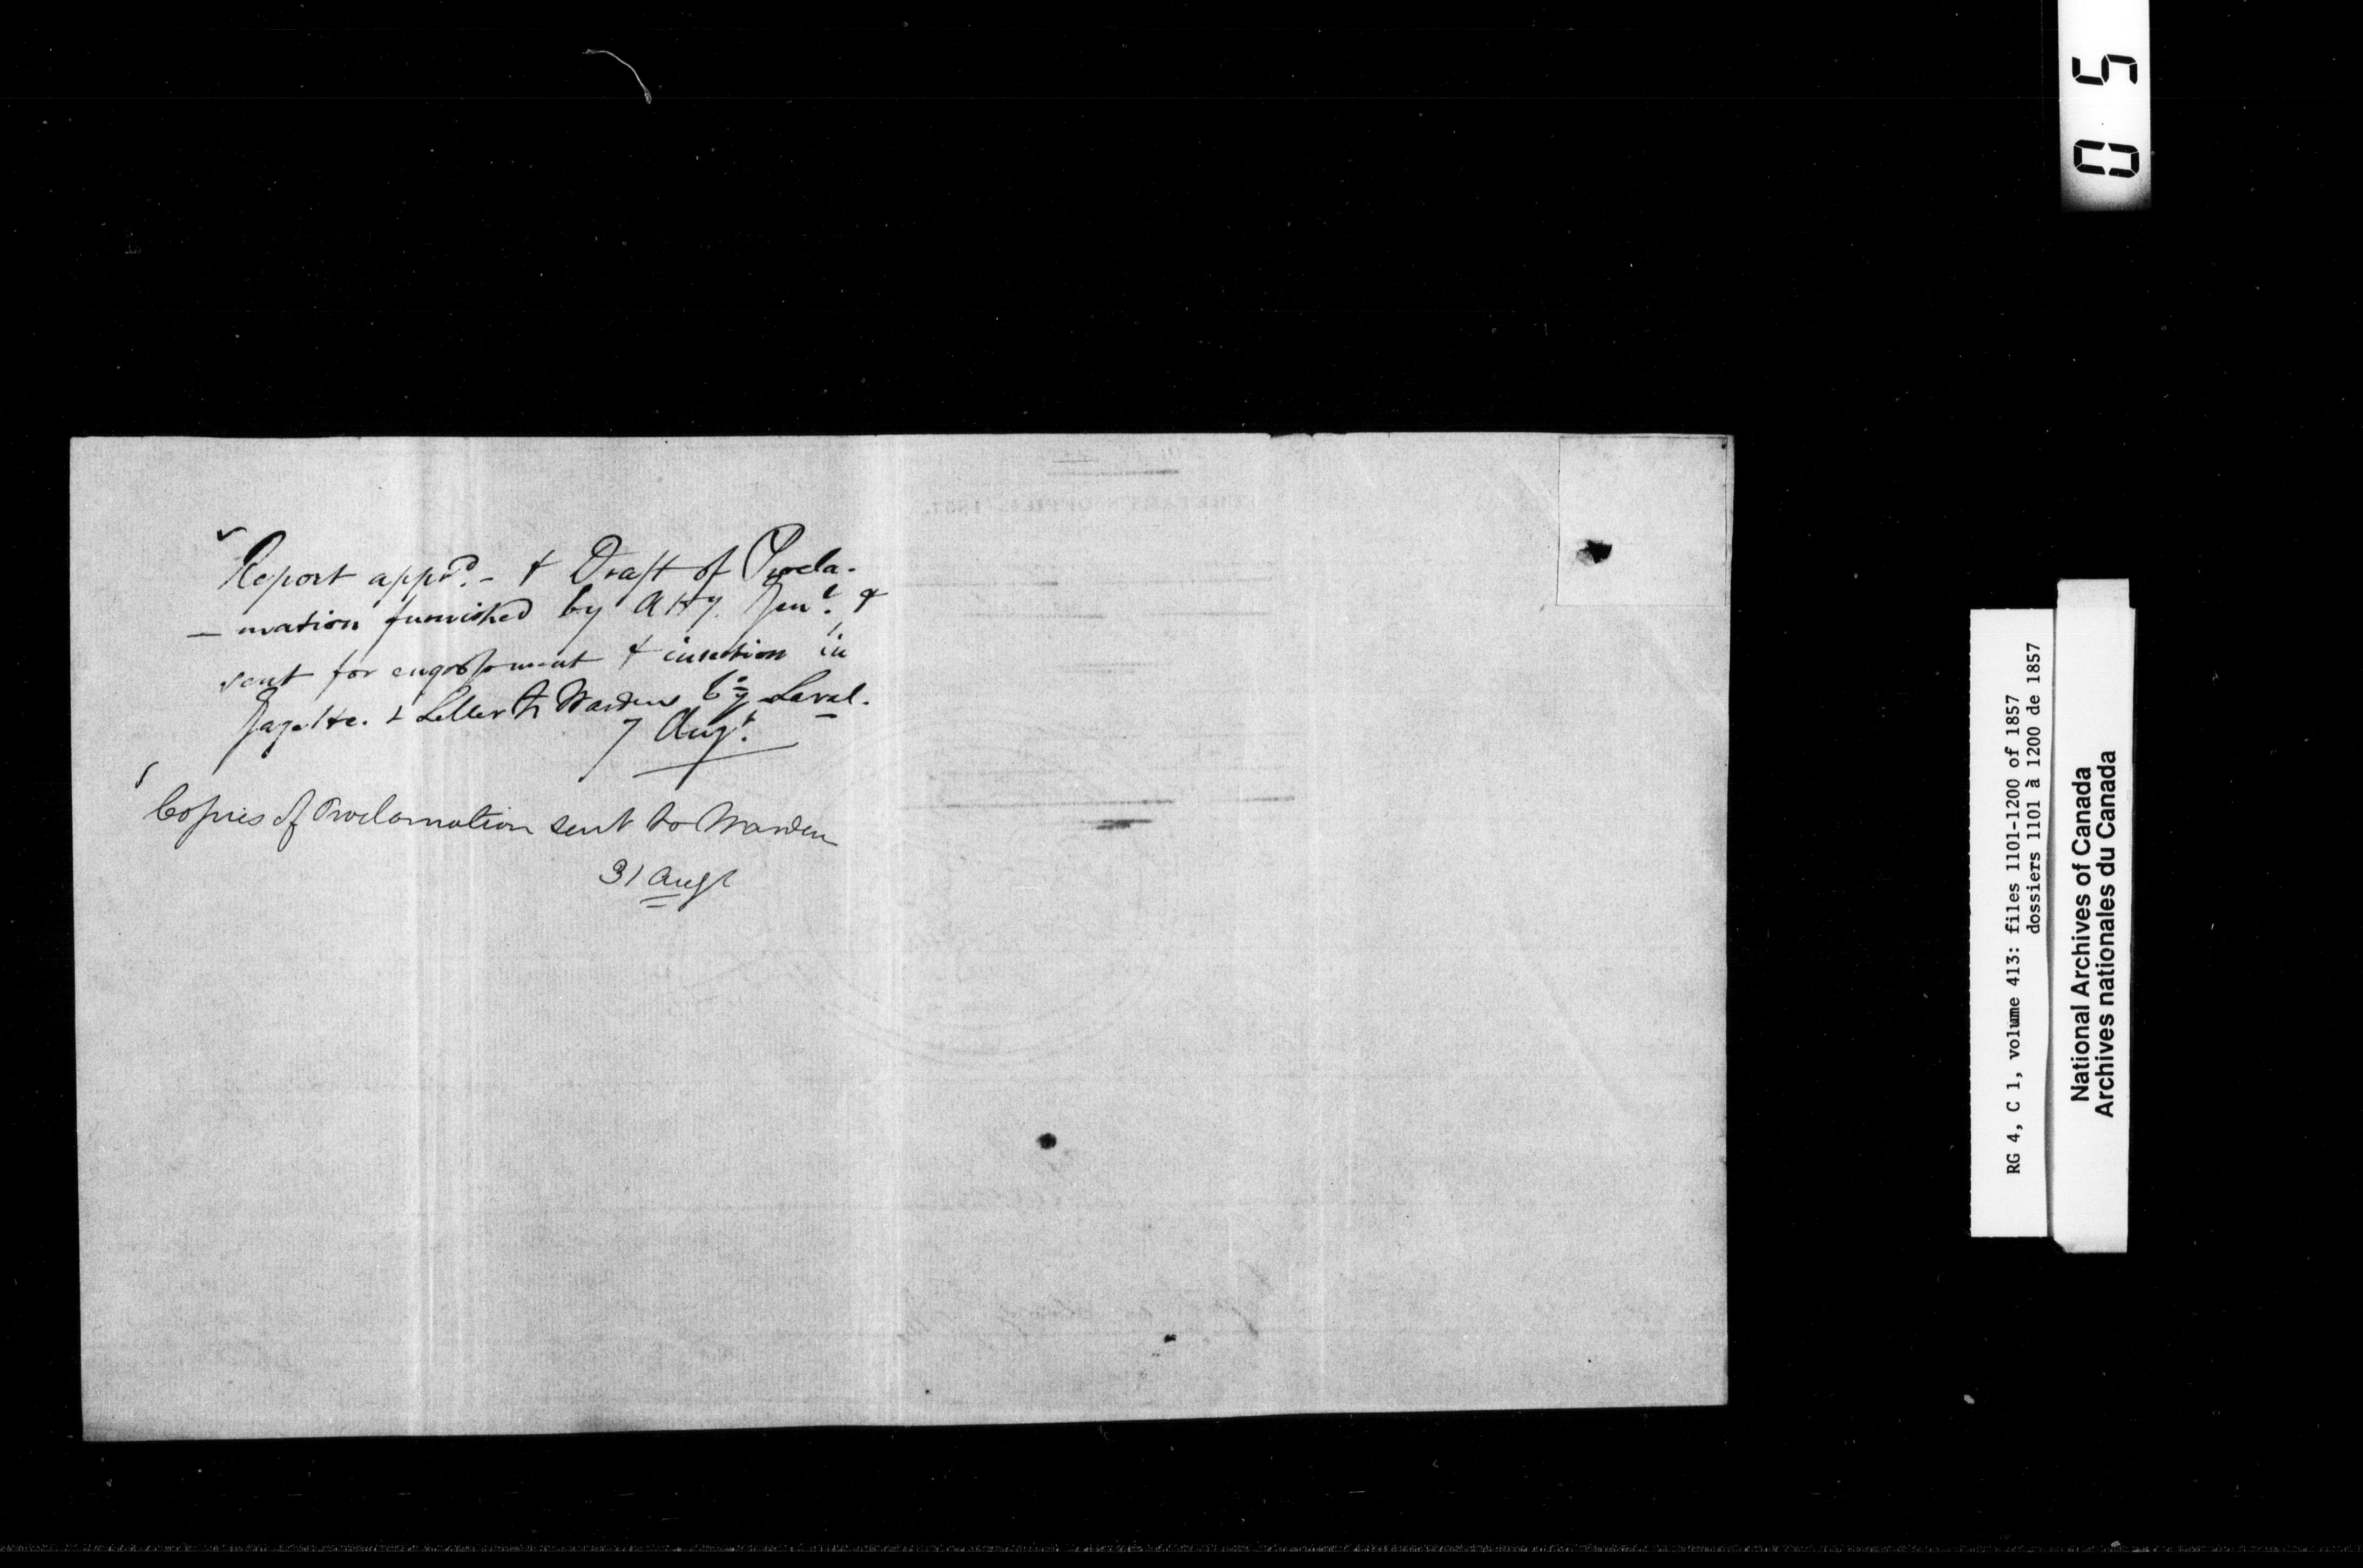 Report appr^d. - & Draft of Procla-
- mation furnished by Atty. Gen^l. &
sent for engrossment & insertion in
Gazette. & Letter to Warden C^o y Laval.
7 Aug^t.
Copies of Proclamation sent to Warden
31 Augt
0 5
RG 4, C 1, volume 413: files 1101-1200 of 1857
dossiers 1101 à 1200 de 1857
National Archives of Canada
Archives nationales du Canada